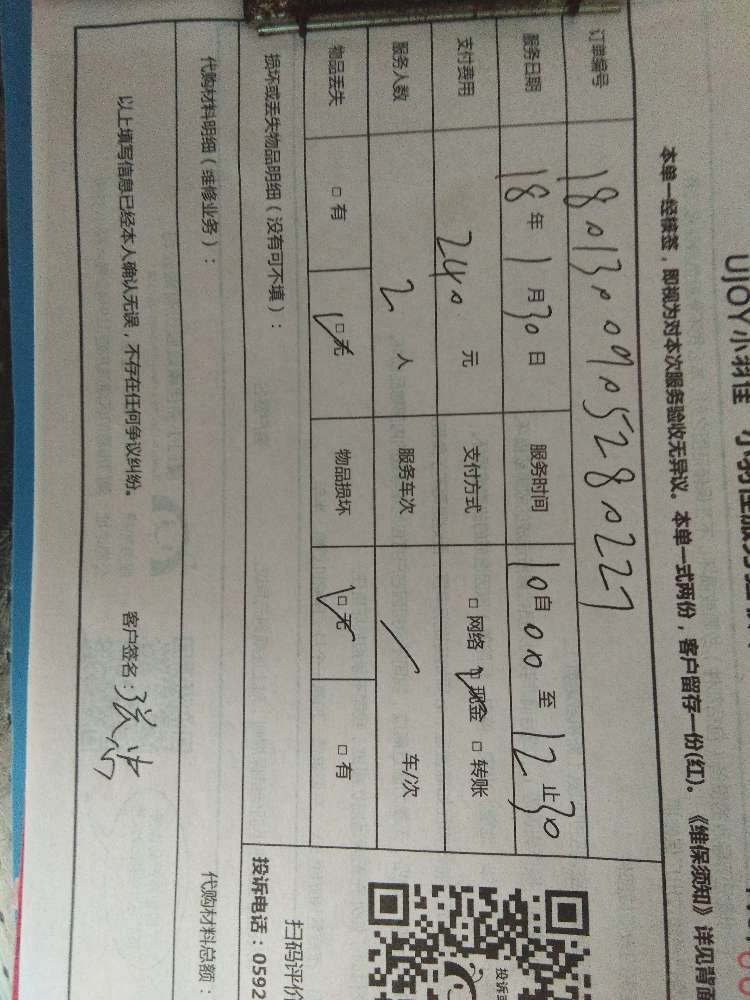 UJOY小羽佳 小羽佳服务
本单一经核签，即视为对本次服务验收无异议。本单一式两份，客户留存一份(红)。《维保须知》详见背面
订单编号 1801300905280227
服务日期 18年1月30日 服务时间 10自00至12止30
支付费用 240元 支付方式 □网络 ☑现金 □转账
服务人数 2人 服务车次 / 车/次
物品丢失 □有 ☑无 物品损坏 ☑无 □有
损坏或丢失物品明细（没有可不填）：
代购材料明细（维修业务）： 代购材料总额：
以上填写信息已经本人确认无误，不存在任何争议纠纷。 客户签名：张
扫码评价
投诉电话：0592